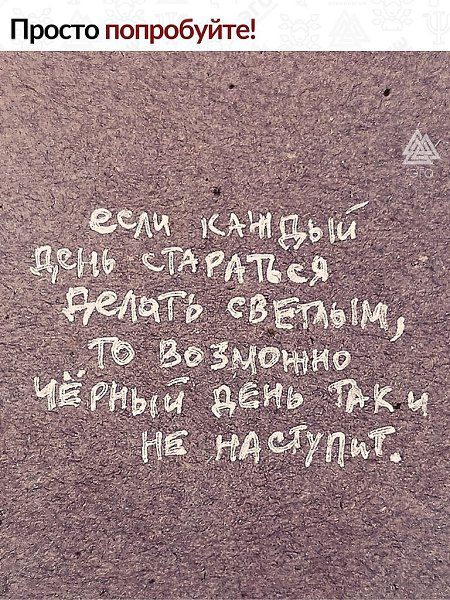 Просто попробуйте!
если каждый
день стараться
делать светлым,
то возможно
чёрный день так и
не наступит.